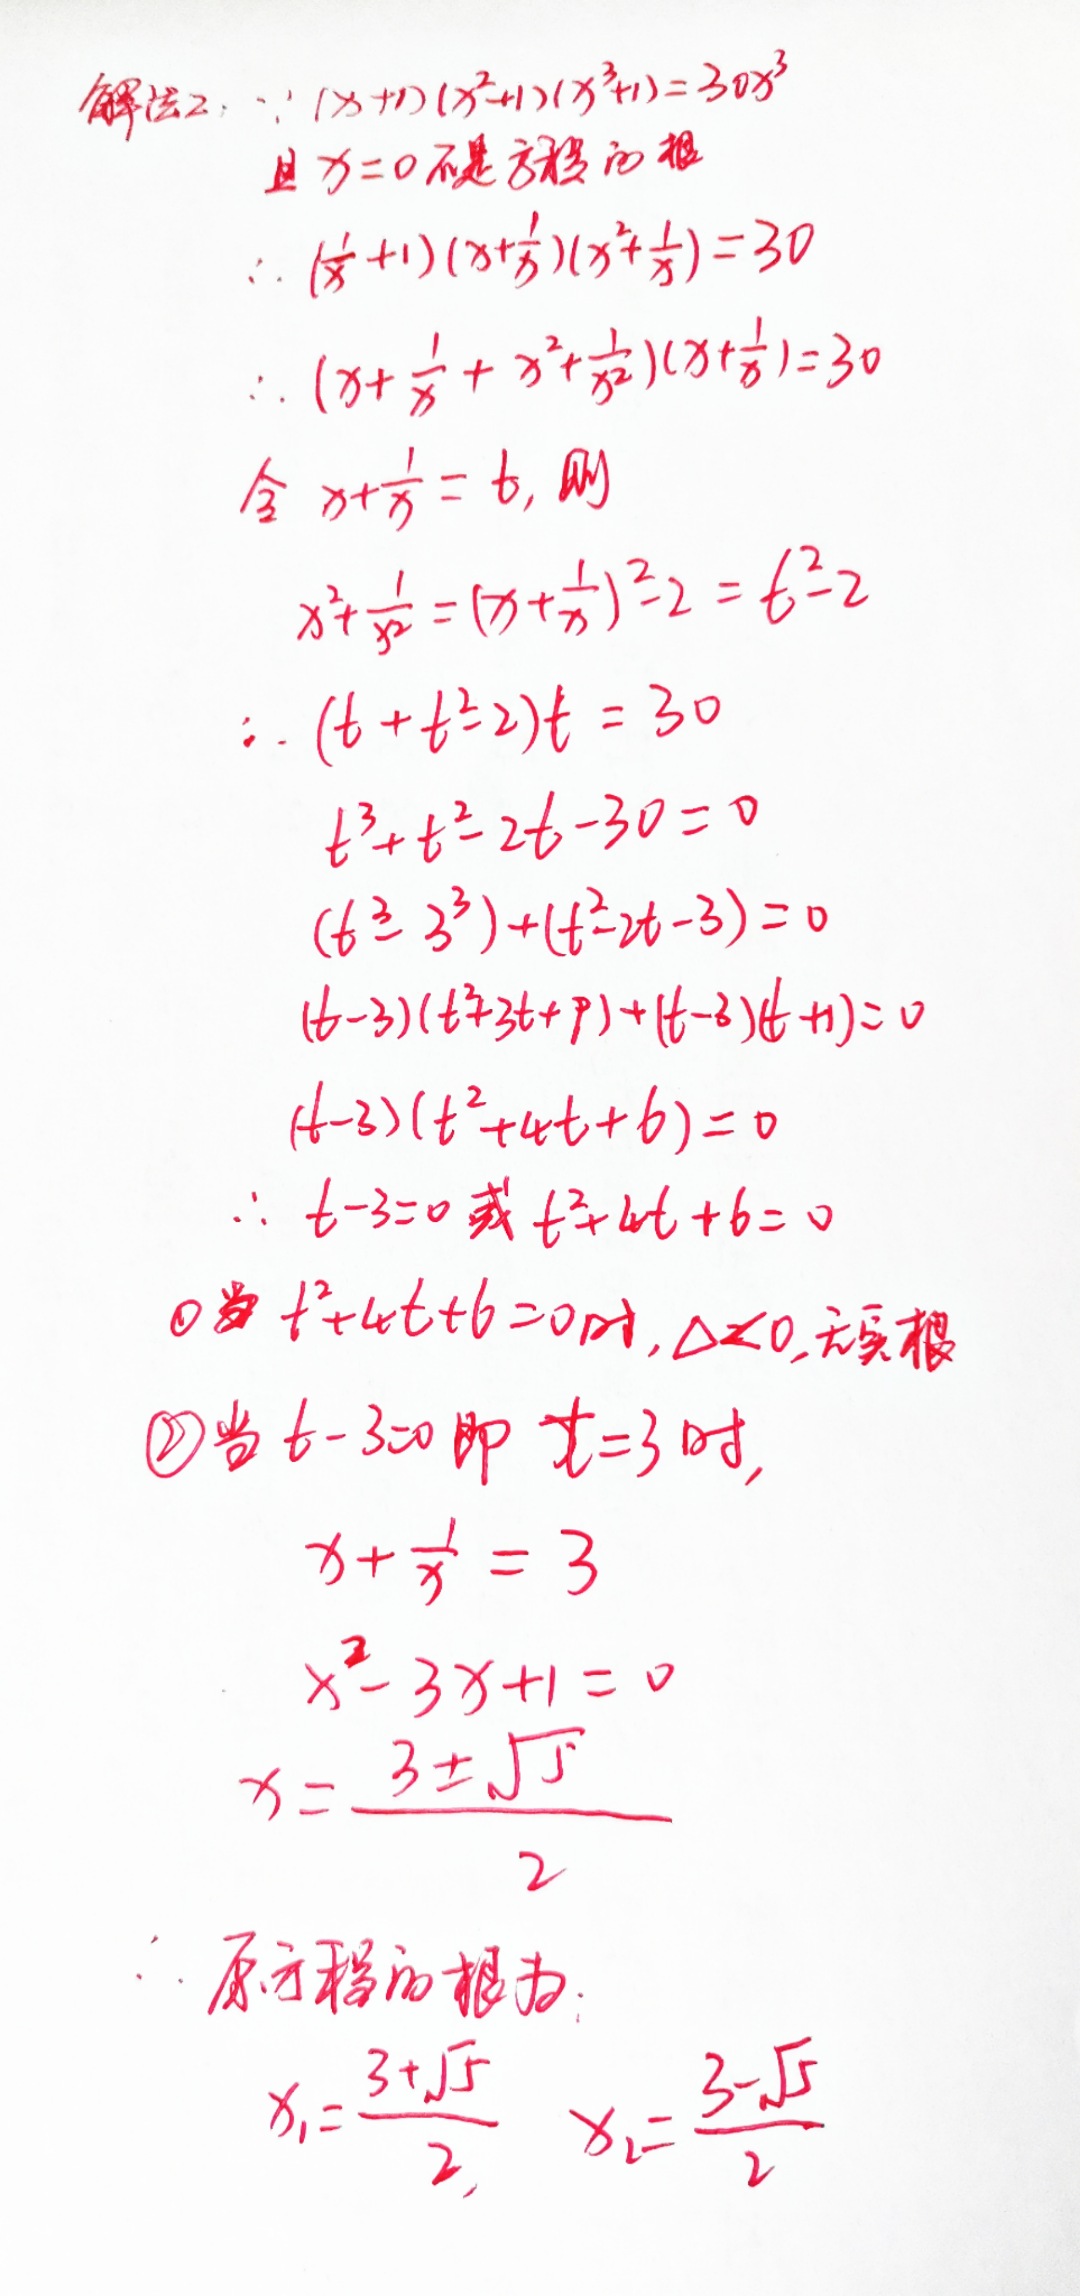 解法2: ∵ (x+1)(x²+1)(x³+1)=30x³
且 x=0 不是方程的根
∴ (1/x+1)(x+1/x)(x²+1/x)=30
∴ (x+1/x+x²+1/x²)(x+1/x)=30
令 x+1/x=t, 则
x²+1/x²=(x+1/x)²-2=t²-2
∴ (t+t²-2)t=30
t³+t²-2t-30=0
(t³-3³)+(t²-2t-3)=0
(t-3)(t²+3t+9)+(t-3)(t+1)=0
(t-3)(t²+4t+6)=0
∴ t-3=0 或 t²+4t+6=0
① 当 t²+4t+6=0时, △<0, 无实根
② 当 t-3=0 即 t=3时,
x+1/x=3
x²-3x+1=0
x=(3±√5)/2
∴ 原方程的根为:
x₁=(3+√5)/2, x₂=(3-√5)/2